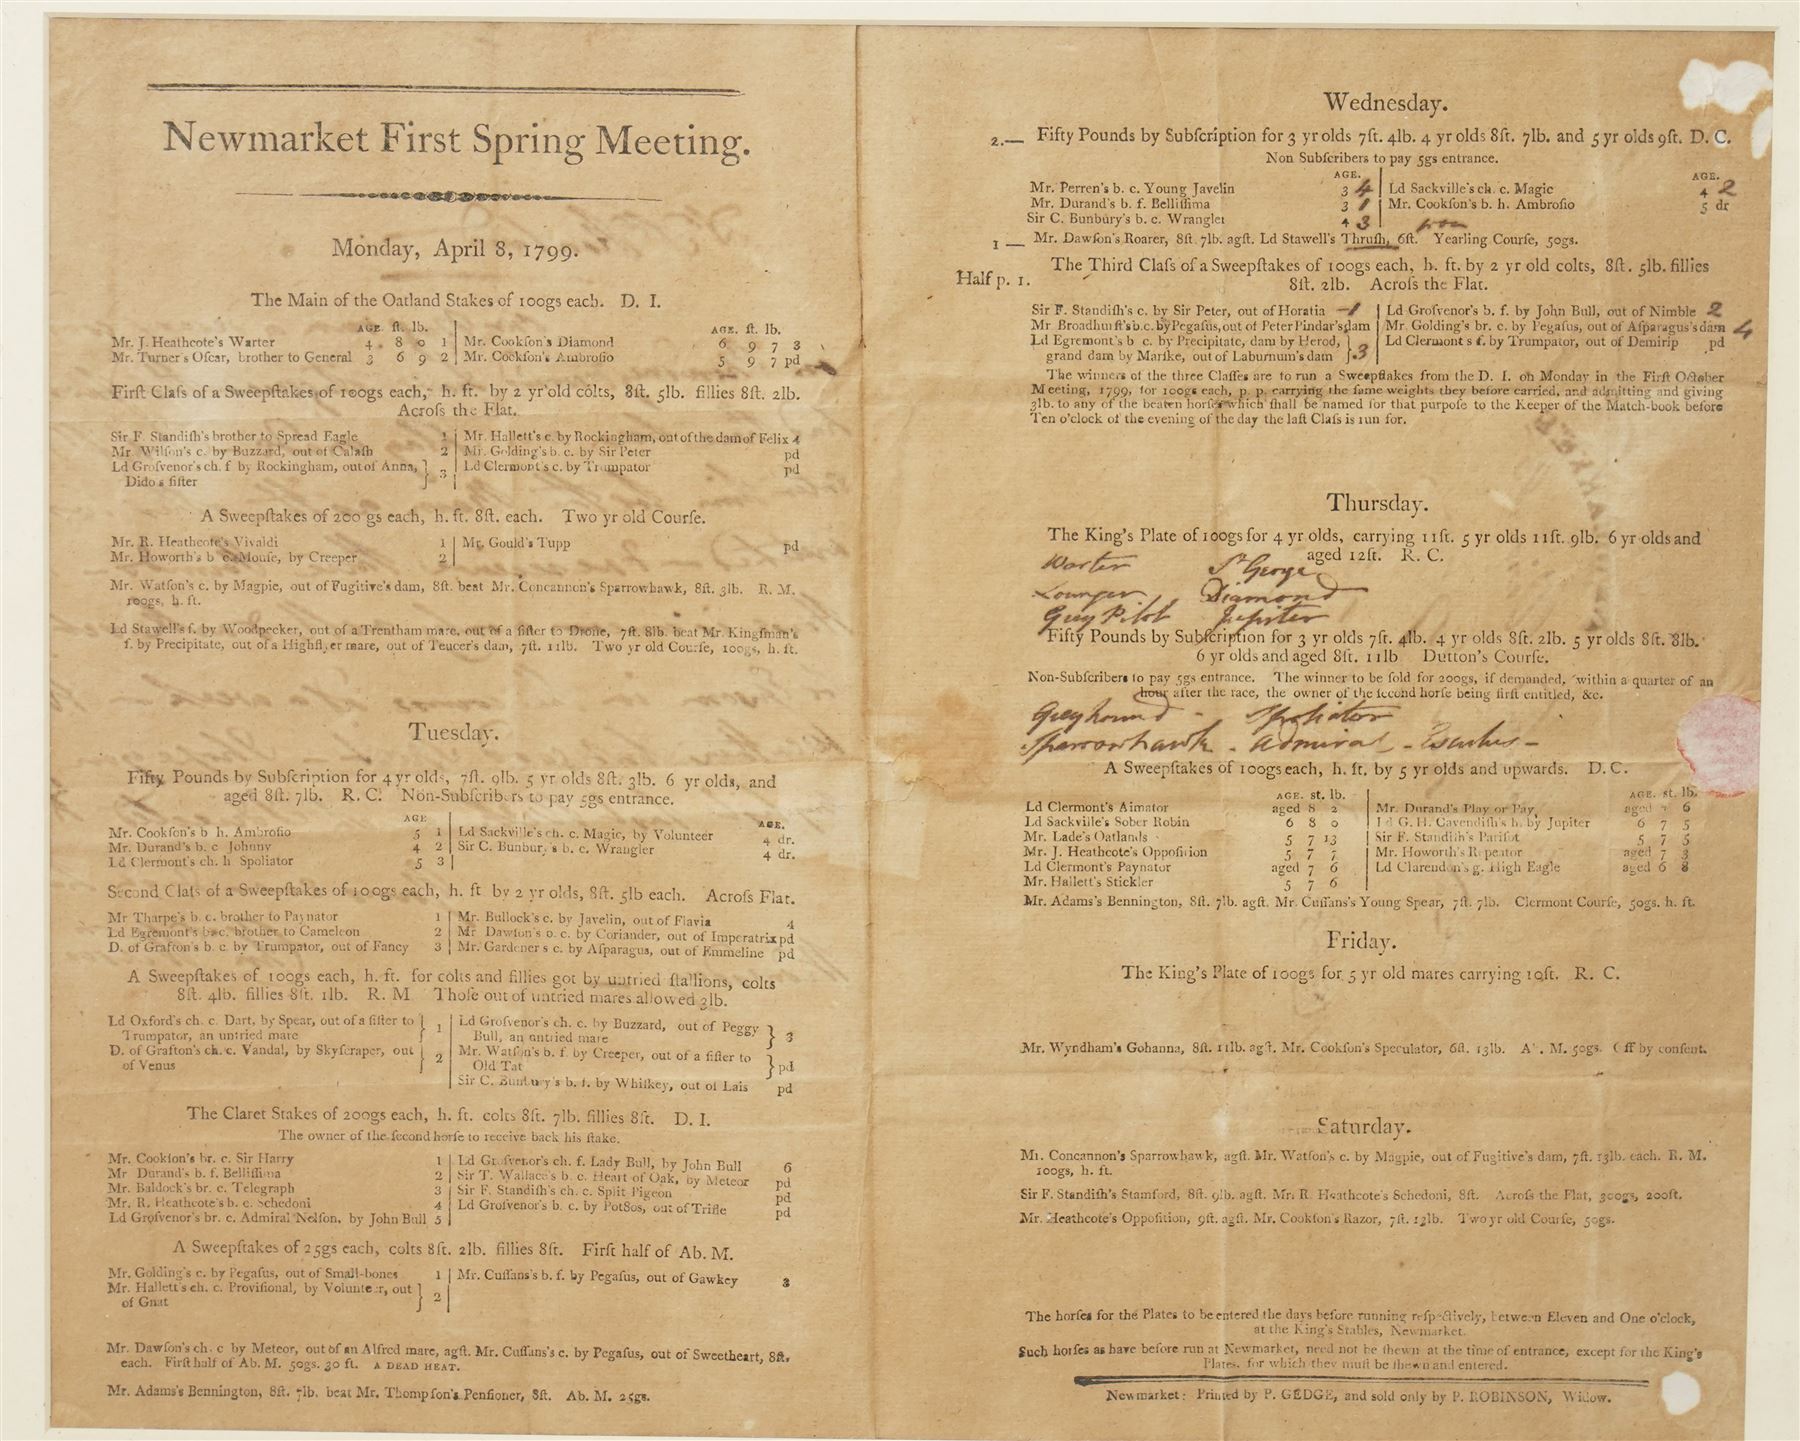 Newmarket First Spring Meeting.
Monday, April 8, 1799.
The Main of the Oatland Stakes of 100gs each. D. I.
AGE ſt. lb.
Mr. J. Heathcote's Warter 4 8 0 1
Mr. Turner's Oſcar, brother to General 3 6 9 2
AGE. ſt. lb.
Mr. Cookſon's Diamond 6 9 7 3
Mr. Cookſon's Ambroſio 5 9 7 pd
Firſt Claſs of a Sweepſtakes of 100gs each, h. ft. by 2 yr old colts, 8ſt. 5lb. fillies 8ſt. 2lb.
Acroſs the Flat.
Sir F. Standiſh's brother to Spread Eagle 1
Mr. Wilſon's c. by Buzzard, out of Calaſh 2
Ld Groſvenor's ch. f by Rockingham, out of Anna, } 3
Dido's ſiſter
Mr. Hallett's c. by Rockingham, out of the dam of Felix 4
Mr. Golding's b. c. by Sir Peter pd
Ld Clermont's c. by Trumpator pd
A Sweepſtakes of 200 gs each, h. ft. 8ſt. each. Two yr old Courſe.
Mr. R. Heathcote's Vivaldi 1
Mr. Howorth's b c. Mouſe, by Creeper 2
Mr. Gould's Tupp pd
Mr. Watſon's c. by Magpie, out of Fugitive's dam, 8ſt. beat Mr. Concannon's Sparrowhawk, 8ſt. 3lb. R. M.
100gs, h. ft.
Ld Stawell's f. by Woodpecker, out of a Trentham mare, out of a ſiſter to Drone, 7ſt. 8lb. beat Mr. Kingſman's
f. by Precipitate, out of a Highflyer mare, out of Teucer's dam, 7ſt. 11lb. Two yr old Courſe, 100gs, h. ft.
Tuesday.
Fifty Pounds by Subſcription for 4 yr olds, 7ſt. 9lb. 5 yr olds 8ſt. 3lb. 6 yr olds, and
aged 8ſt. 7lb. R. C. Non-Subſcribers to pay 5gs entrance.
AGE
Mr. Cookſon's b h. Ambroſio 5 1
Mr. Durand's b. c Johnny 4 2
Ld Clermont's ch. h Spoliator 5 3
AGE.
Ld Sackville's ch. c. Magic, by Volunteer 4 dr.
Sir C. Bunbury's b. c. Wrangler 4 dr.
Second Claſs of a Sweepſtakes of 100gs each, h. ft by 2 yr olds, 8ſt. 5lb each. Acroſs Flat.
Mr Tharpe's b. c. brother to Paynator 1
Ld Egremont's b. c. brother to Cameleon 2
D. of Grafton's b. c. by Trumpator, out of Fancy 3
Mr. Bullock's c. by Javelin, out of Flavia 4
Mr Dawſon's b. c. by Coriander, out of Imperatrix pd
Mr. Gardener's c. by Aſparagus, out of Emmeline pd
A Sweepſtakes of 100gs each, h. ft. for colts and fillies got by untried ſtallions, colts
8ſt. 4lb. fillies 8ſt. 1lb. R. M Thoſe out of untried mares allowed 3lb.
Ld Oxford's ch. c. Dart, by Spear, out of a ſiſter to } 1
Trumpator, an untried mare
D. of Grafton's ch. c. Vandal, by Skyſcraper, out } 2
of Venus
Ld Groſvenor's ch. c. by Buzzard, out of Peggy } 3
Bull, an untried mare
Mr. Watſon's b. f. by Creeper, out of a ſiſter to } pd
Old Tat
Sir C. Bunbury's b. f. by Whiſkey, out of Lais pd
The Claret Stakes of 200gs each, h. ft. colts 8ſt. 7lb. fillies 8ſt. D. I.
The owner of the ſecond horſe to receive back his ſtake.
Mr. Cookſon's br. c. Sir Harry 1
Mr Durand's b. f. Belliſſima 2
Mr. Baldock's br. c. Telegraph 3
Mr. R. Heathcote's b. c. Schedoni 4
Ld Groſvenor's br. c. Admiral Nelſon, by John Bull 5
Ld Groſvenor's ch. f. Lady Bull, by John Bull 6
Sir T. Wallace's b. c. Heart of Oak, by Meteor pd
Sir F. Standiſh's ch. c. Split Pigeon pd
Ld Groſvenor's b. c. by Pot8os, out of Trifle pd
A Sweepſtakes of 25gs each, colts 8ſt. 2lb. fillies 8ſt. Firſt half of Ab. M.
Mr. Golding's c. by Pegaſus, out of Small-bones 1
Mr. Hallett's ch. c. Proviſional, by Volunteer, out } 2
of Gnat
Mr. Cuſſans's b. f. by Pegaſus, out of Gawkey 3
Mr. Dawſon's ch. c by Meteor, out of an Alfred mare, agſt. Mr. Cuſſans's c. by Pegaſus, out of Sweetheart, 8ſt.
each. Firſt half of Ab. M. 50gs. 30 ft. A DEAD HEAT.
Mr. Adams's Bennington, 8ſt. 7lb. beat Mr. Thompſon's Penſioner, 8ſt. Ab. M. 25gs.
Wednesday.
2.— Fifty Pounds by Subſcription for 3 yr olds 7ſt. 4lb. 4 yr olds 8ſt. 7lb. and 5 yr olds 9ſt. D. C.
Non Subſcribers to pay 5gs entrance.
AGE.
Mr. Perren's b. c. Young Javelin 3 4
Mr. Durand's b. f. Belliſſima 3 1
Sir C. Bunbury's b. c. Wrangler 4 3
AGE.
Ld Sackville's ch. c. Magic 4 2
Mr. Cookſon's b. h. Ambroſio 5 dr
won
1 — Mr. Dawſon's Roarer, 8ſt. 7lb. agſt. Ld Stawell's Thruſh, 6ſt. Yearling Courſe, 50gs.
Half p. 1. The Third Claſs of a Sweepſtakes of 100gs each, h. ft. by 2 yr old colts, 8ſt. 5lb. fillies
8ſt. 2lb. Acroſs the Flat.
Sir F. Standiſh's c. by Sir Peter, out of Horatia 1
Mr Broadhurſt's b. c. by Pegaſus, out of Peter Pindar's dam
Ld Egremont's b c. by Precipitate, dam by Herod, } 3
grand dam by Marſke, out of Laburnum's dam
Ld Groſvenor's b. f. by John Bull, out of Nimble 2
Mr. Golding's br. c. by Pegaſus, out of Aſparagus's dam 4
Ld Clermont s f. by Trumpator, out of Demirip pd
The winners of the three Claſſes are to run a Sweepſtakes from the D. I. on Monday in the Firſt October
Meeting, 1799, for 100gs each, p. p. carrying the ſame weights they before carried, and admitting and giving
3lb. to any of the beaten horſes which ſhall be named for that purpoſe to the Keeper of the Match-book before
Ten o'clock of the evening of the day the laſt Claſs is run for.
Thursday.
The King's Plate of 100gs for 4 yr olds, carrying 11ſt. 5 yr olds 11ſt. 9lb. 6 yr olds and
aged 12ſt. R. C.
Warter St George
Lounger Diamond
Grey Pilot Jupiter
Fifty Pounds by Subſcription for 3 yr olds 7ſt. 4lb. 4 yr olds 8ſt. 2lb. 5 yr olds 8ſt. 8lb.
6 yr olds and aged 8ſt. 11lb Dutton's Courſe.
Non-Subſcribers to pay 5gs entrance. The winner to be ſold for 200gs, if demanded, within a quarter of an
hour after the race, the owner of the ſecond horſe being firſt entitled, &c.
Greyhound - Spoliator
Sparrowhawk - Admiral -
A Sweepſtakes of 100gs each, h. ft. by 5 yr olds and upwards. D. C.
AGE. st. lb.
Ld Clermont's Aimator aged 8 2
Ld Sackville's Sober Robin 6 8 0
Mr. Lade's Oatlands 5 7 13
Mr. J. Heathcote's Oppoſition 5 7 7
Ld Clermont's Paynator aged 7 6
Mr. Hallett's Stickler 5 7 6
AGE. st. lb.
Mr. Durand's Play or Pay, aged 7 6
Ld G. H. Cavendiſh's h. by Jupiter 6 7 5
Sir F. Standiſh's Pariſot 5 7 5
Mr. Howorth's Repeator aged 7 3
Ld Clarendon's g. High Eagle aged 6 8
Mr. Adams's Bennington, 8ſt. 7lb. agſt. Mr. Cuſſans's Young Spear, 7ſt. 7lb. Clermont Courſe, 50gs. h. ft.
Friday.
The King's Plate of 100gs for 5 yr old mares carrying 10ſt. R. C.
Mr. Wyndham's Gohanna, 8ſt. 11lb. agſt. Mr. Cookſon's Speculator, 6ſt. 13lb. Ab. M. 50gs. Off by conſent.
Saturday.
Mr. Concannon's Sparrowhawk, agſt. Mr. Watſon's c. by Magpie, out of Fugitive's dam, 7ſt. 13lb. each. R. M.
100gs, h. ft.
Sir F. Standiſh's Stamford, 8ſt. 9lb. agſt. Mr. R. Heathcote's Schedoni, 8ſt. Acroſs the Flat, 300gs, 200ft.
Mr. Heathcote's Oppoſition, 9ſt. agſt. Mr. Cookſon's Razor, 7ſt. 12lb. Two yr old Courſe, 50gs.
The horſes for the Plates to be entered the days before running reſpectively, between Eleven and One o'clock,
at the King's Stables, Newmarket.
Such horſes as have before run at Newmarket, need not be ſhewn at the time of entrance, except for the King's
Plates, for which they muſt be ſhewn and entered.
Newmarket: Printed by P. GEDGE, and sold only by P. ROBINSON, Widow.